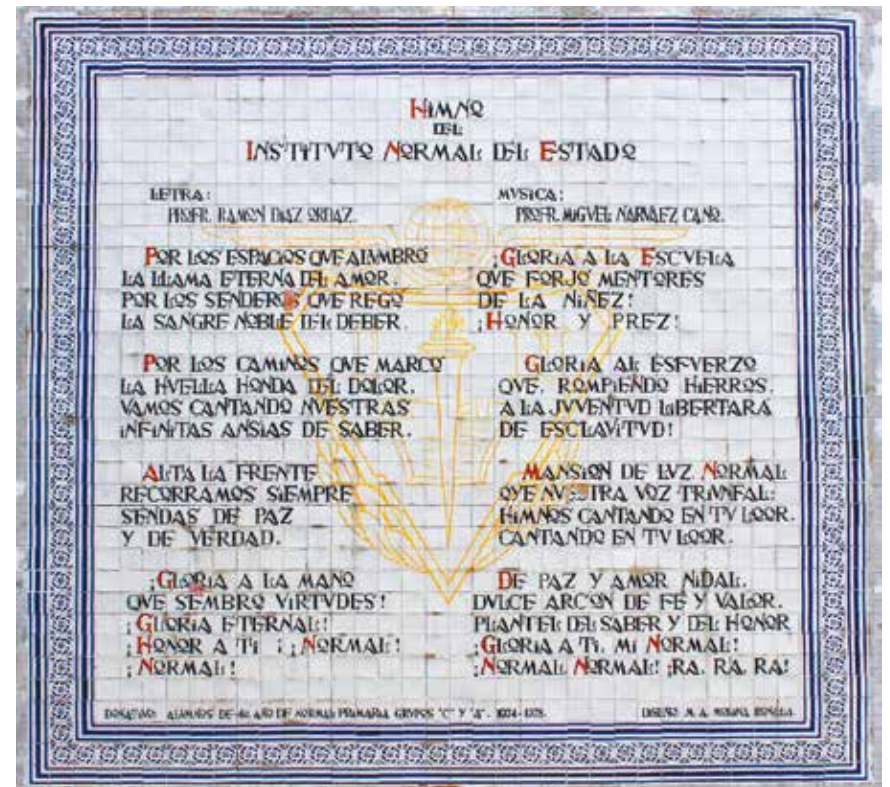 HIMNO
DEL
INSTITVTO NORMAL DEL ESTADO
LETRA:
PROFR. RAMON DIAZ ORDAZ.
MVSICA:
PROFR. MIGVEL NARVAEZ CANO.
POR LOS ESPACIOS QVE ALVMBRO
LA LLAMA ETERNA DEL AMOR.
POR LOS SENDEROS QVE REGO
LA SANGRE NOBLE DEL DEBER.
POR LOS CAMINOS QVE MARCO
LA HVELLA HONDA DEL DOLOR.
VAMOS CANTANDO NVESTRAS
INFINITAS ANSIAS DE SABER.
ALTA LA FRENTE
RECORRAMOS SIEMPRE
SENDAS DE PAZ
Y DE VERDAD.
¡GLORIA A LA MANO
QVE SEMBRO VIRTVDES!
¡GLORIA ETERNAL!
¡HONOR A TI ¡ ¡NORMAL!
¡NORMAL!
¡GLORIA A LA ESCVELA
QVE FORJO MENTORES
DE LA NIÑEZ!
¡HONOR Y PREZ!
GLORIA AL ESFVERZO
QVE, ROMPIENDO HIERROS,
A LA JVVENTVD LIBERTARA
DE ESCLAVITVD!
MANSION DE LVZ, NORMAL
QVE NVESTRA VOZ TRIVNFAL:
HIMNOS CANTANDO EN TV LOOR.
CANTANDO EN TV LOOR.
DE PAZ Y AMOR NIDAL.
DVLCE ARCON DE FE Y VALOR.
PLANTEL DEL SABER Y DEL HONOR
¡GLORIA A TI, MI NORMAL!
¡NORMAL NORMAL! ¡RA, RA, RA!
DONATIVO: ALVMNOS DE 4o. AÑO DE NORMAL PRIMARIA GRVPOS "C" Y "A".
DISEÑO: M. A. MOLINA